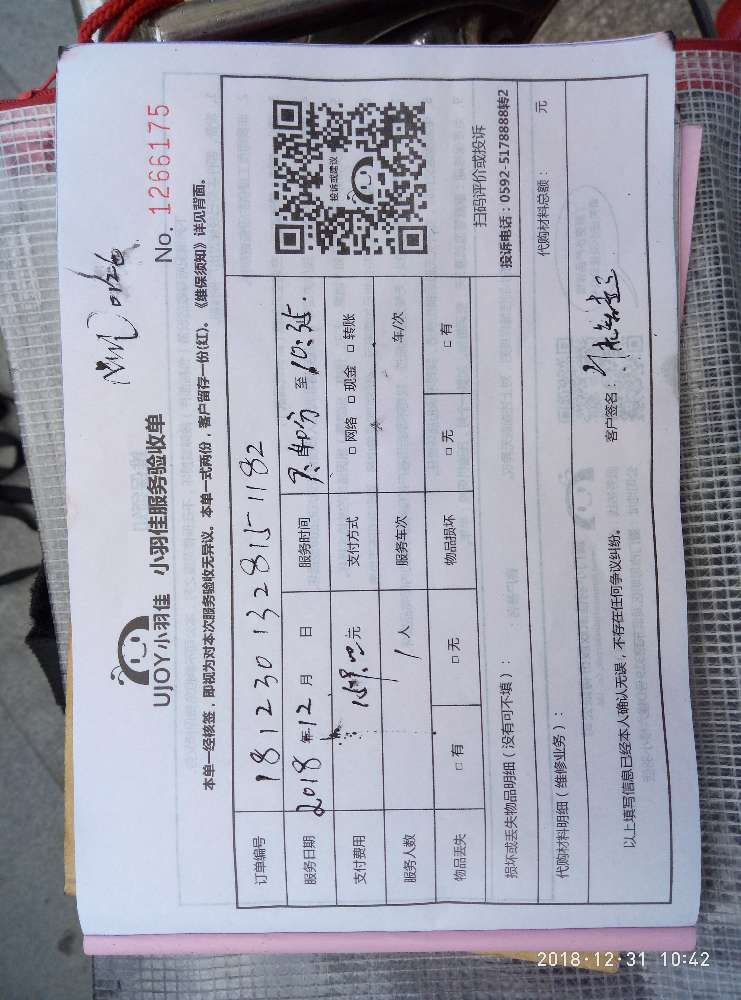 No. 1266175
UJOY小羽佳 小羽佳服务验收单
本单一经核签，即视为对本次服务验收无异议。本单一式两份，客户留存一份(红)。《维保须知》详见背面。
订单编号 1812301328151182
服务日期 2018年12月 日 服务时间 至 10:35.
支付费用 元 支付方式 □网络 □现金 □转账
服务人数 1人 服务车次 车/次
物品丢失 □有 □无 物品损坏 □无 □有
投诉或建议
扫码评价或投诉
投诉电话：0592-5178888转2
损坏或丢失物品明细（没有可不填）：
代购材料明细（维修业务）： 代购材料总额： 元
以上填写信息已经本人确认无误，不存在任何争议纠纷。 客户签名：
2018-12-31 10:42